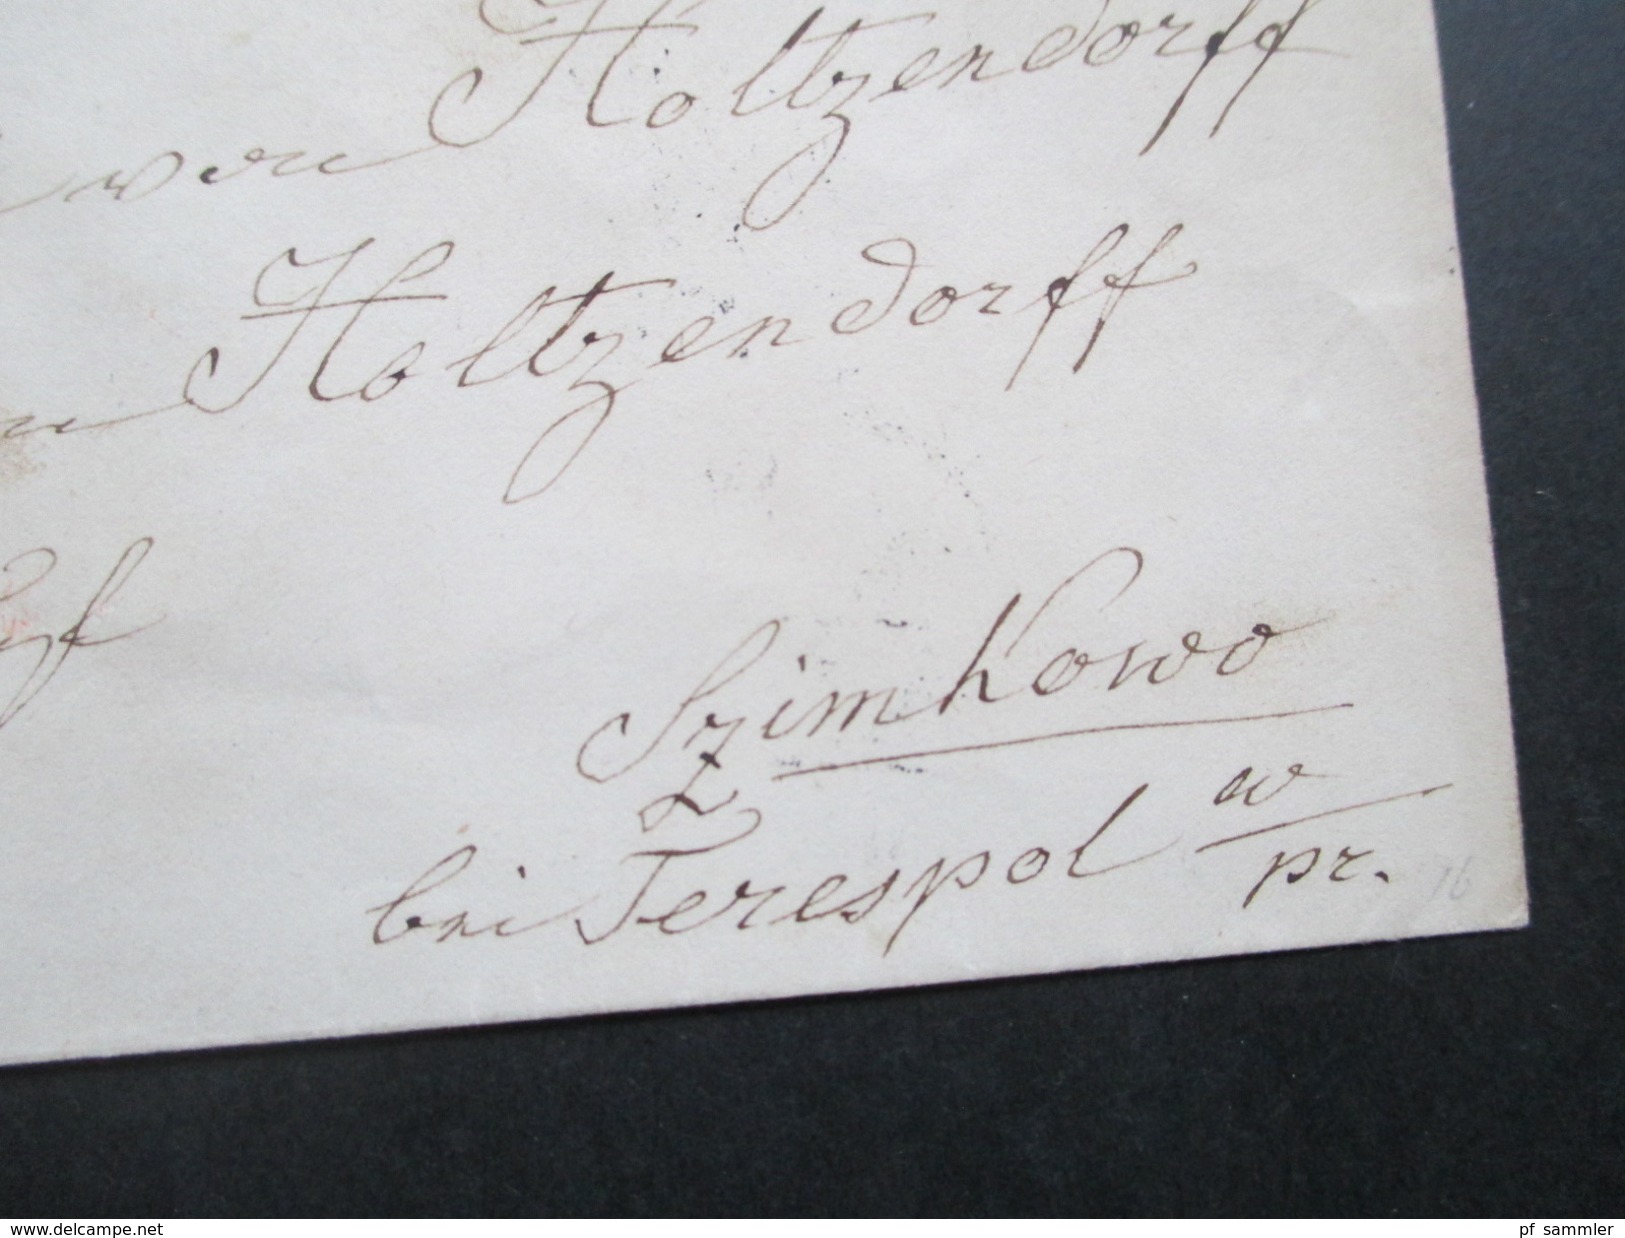 von Holtzendorff
Holtzendorff
Szimkowo
bei Terespol w/pr.
16
www.delcampe.net
pf_sammler